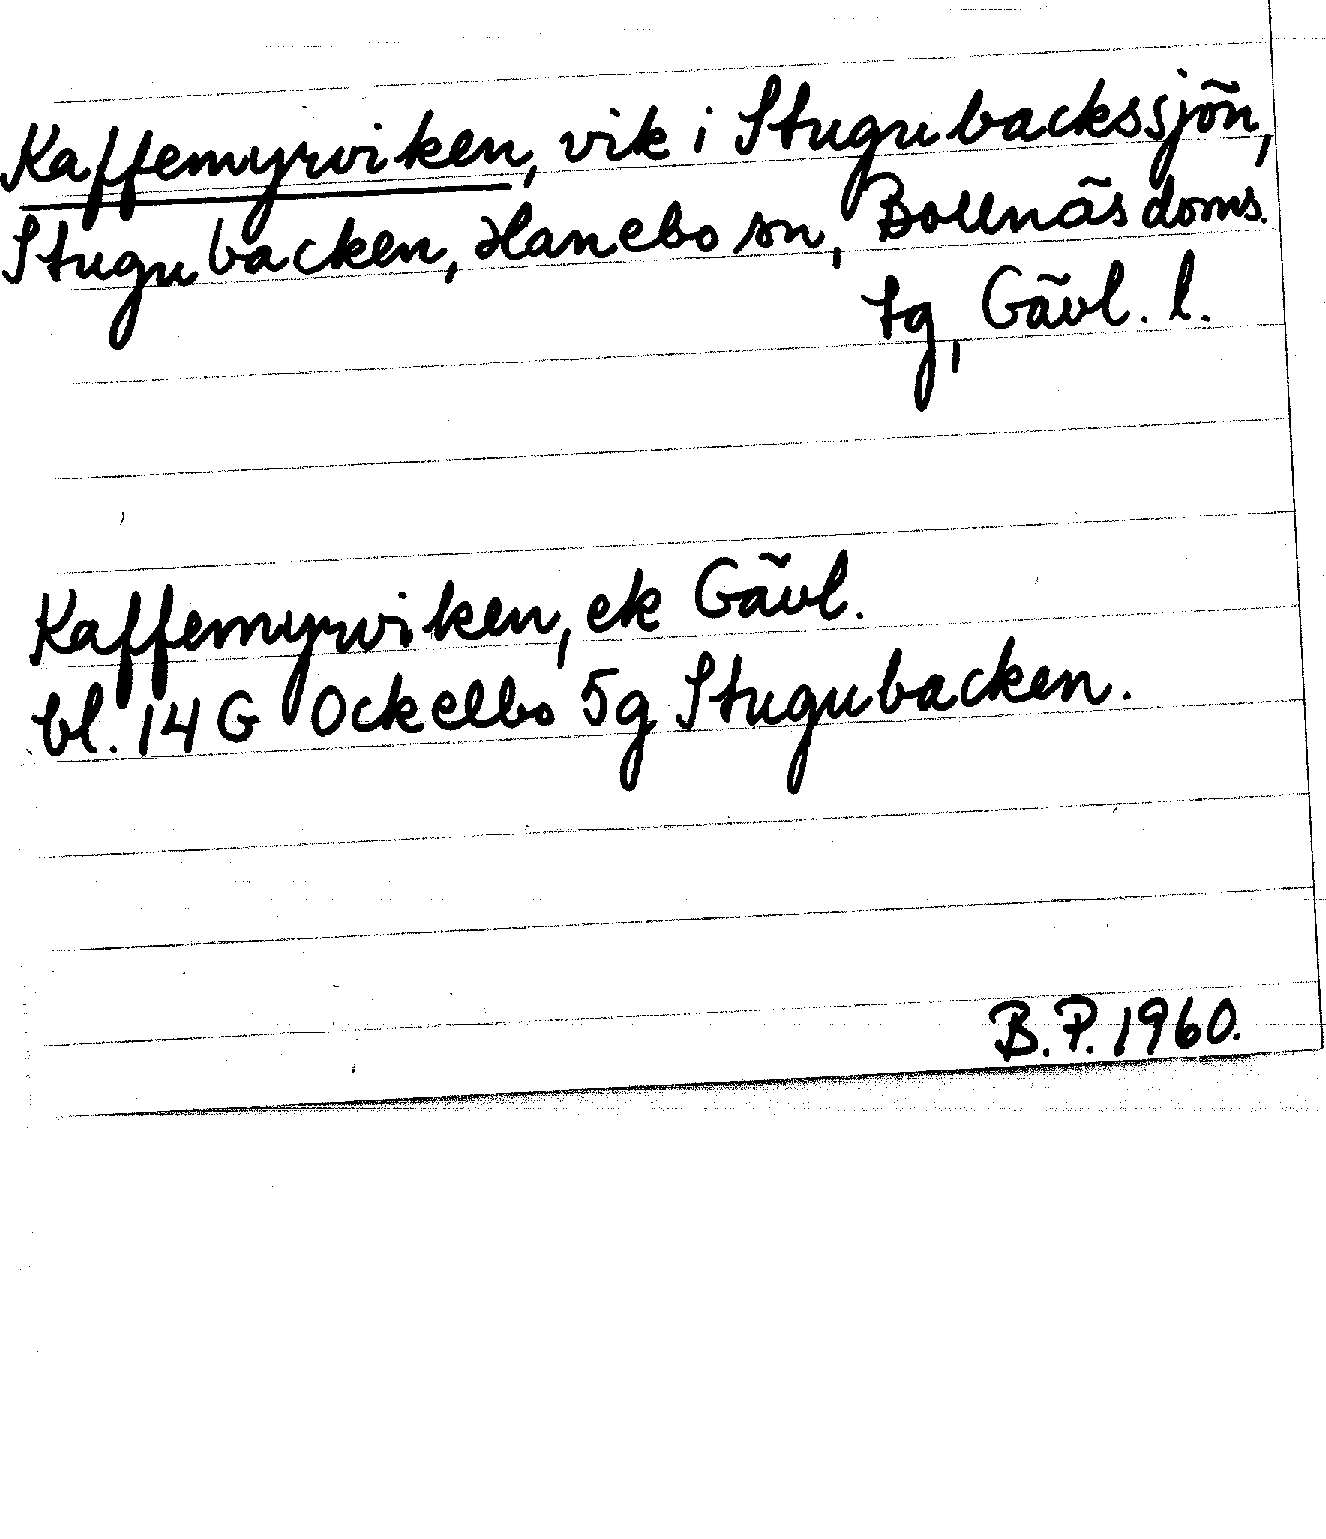 Kaffemyrviken, vik i Stugubackssjön,
Stugubacken, Hanebo sn, Bollnäs doms.
tg, Gävl. l.
Kaffemyrviken, ek Gävl.
bl. 14 G Ockelbo 5g Stugubacken.
B.P. 1960.